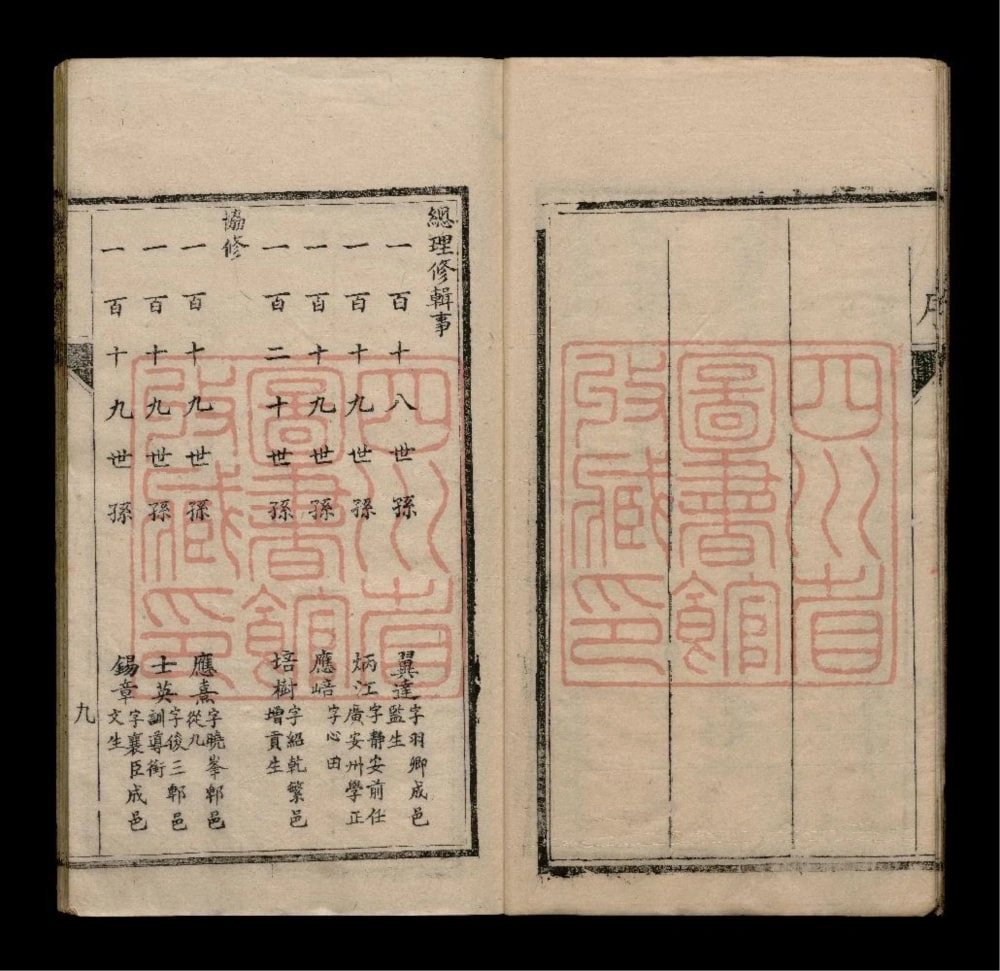 序
總理修輯事
一百十八世孫 翼達 字羽卿成邑監生
一百十九世孫 炳江 字静安前任廣安州學正
一百十九世孫 應㟷 字心田
一百二十世孫 培樹 字紹乾繁邑增貢生
協修
一百十九世孫 應熹 字曉峯郫邑從九
一百十九世孫 士英 字後三郫邑訓導銜
一百十九世孫 錫章 字襄臣成邑文生
九
四川省圖書館攷藏印
四川省圖書館攷藏印